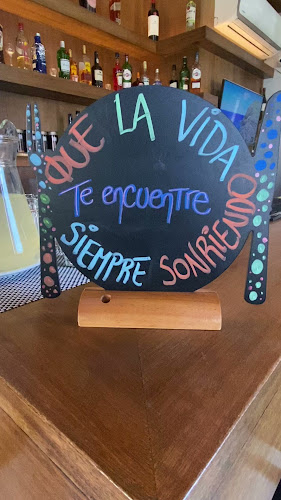 QUE LA VIDA
Te encuentre
SIEMPRE SONRIENDO